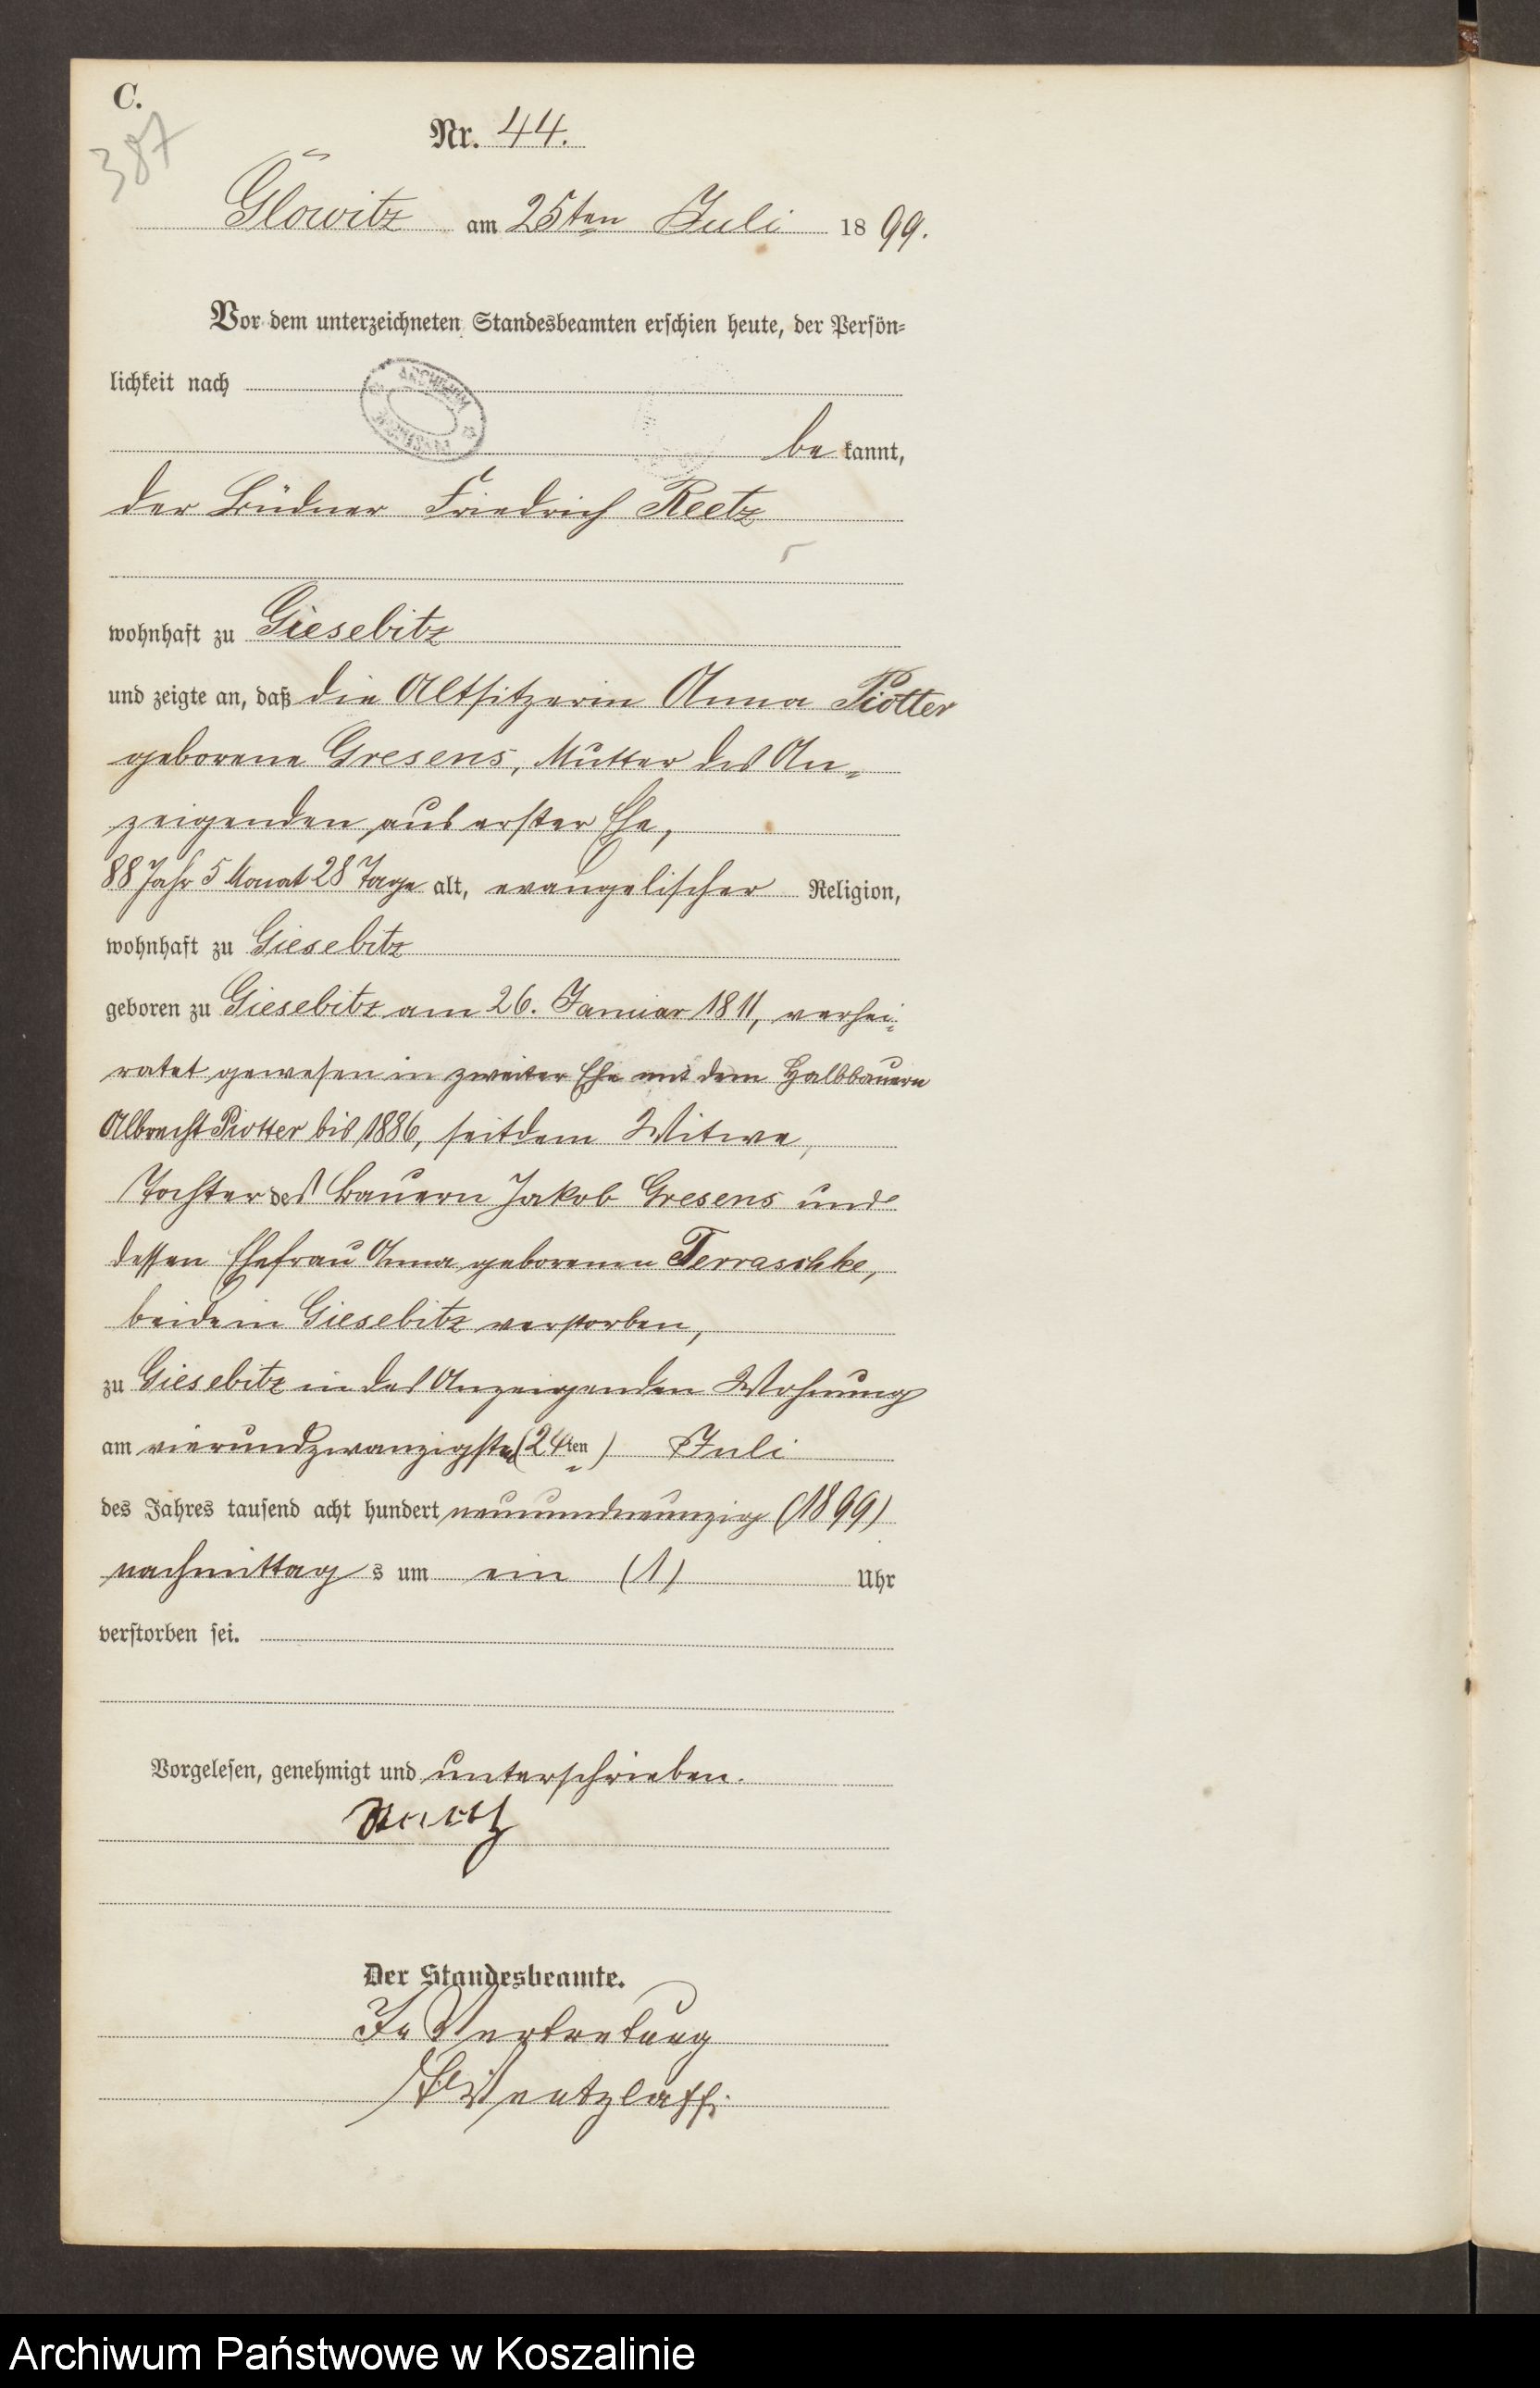 C.
387
Nr. 44.
Glowitz am 25ten Juli 1899.
Vor dem unterzeichneten Standesbeamten erschien heute, der Persön-
lichkeit nach
ARCHIWUM
be kannt,
der Büdner Friedrich Reetz
wohnhaft zu Giesebitz
und zeigte an, daß die Altsitzerin Anna Piotter
geborene Gresens, Mutter des An-
zeigenden aus erster Ehe,
88 Jahr 5 Monat 28 Tage alt, evangelischer Religion,
wohnhaft zu Giesebitz
geboren zu Giesebitz am 26. Januar 1811, verhei-
ratet gewesen in zweiter Ehe mit dem Halbbauern
Albrecht Piotter bis 1886, seitdem Witwe,
Tochter des Bauern Jakob Gresens und
dessen Ehefrau Anna geborenen Terraschke,
beide in Giesebitz verstorben,
zu Giesebitz in des Anzeigenden Wohnung
am vierundzwanzigsten (24ten) Juli
des Jahres tausend acht hundert neunundneunzig (1899)
nachmittag s um ein (1) Uhr
verstorben sei.
Vorgelesen, genehmigt und unterschrieben.
Reetz
Der Standesbeamte.
In Vertretung
Wentzlaff.
Archiwum Państwowe w Koszalinie